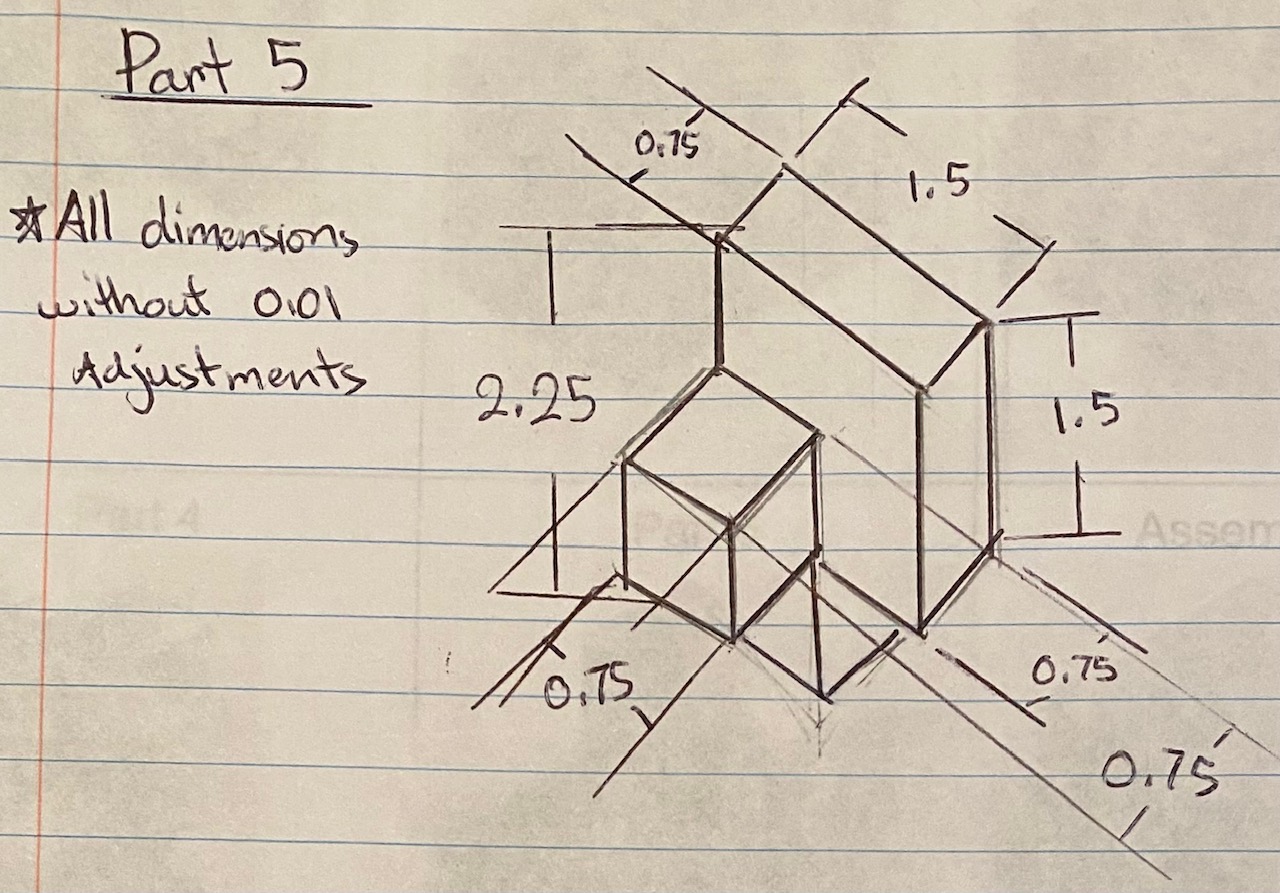 Part 5
☆All dimensions
without 0.01
Adjustments
0.75
1.5
2.25
1.5
0.75
0.75
0.75
Part 4
Assem